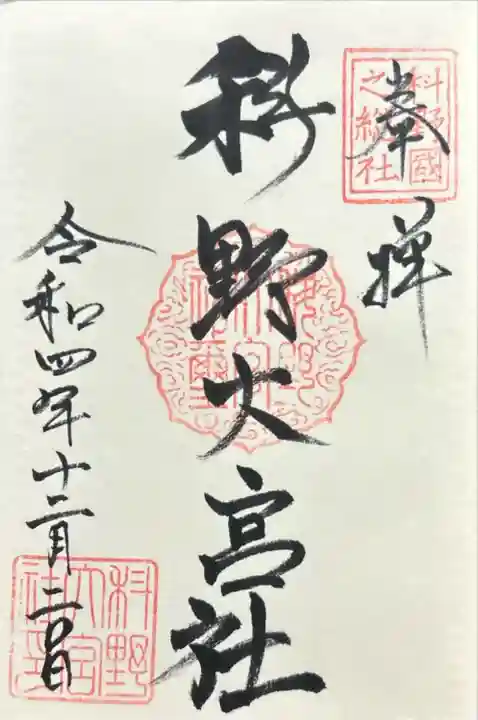 奉拝
科野國
之総社
科野大宮社
令和四年十二月二〇日
科野
大宮
社印